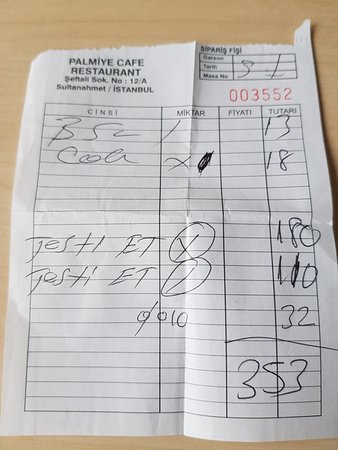 PALMİYE CAFE
RESTAURANT
Şeftali Sok. No : 12/A
Sultanahmet / İSTANBUL
SİPARİŞ FİŞİ
Garson
Tarih
Masa No
003552
CİNSİ MİKTAR FİYATI TUTARI
1 13
Cola x 18
Testi ET 180
Testi ET 1 110
%10 32
353